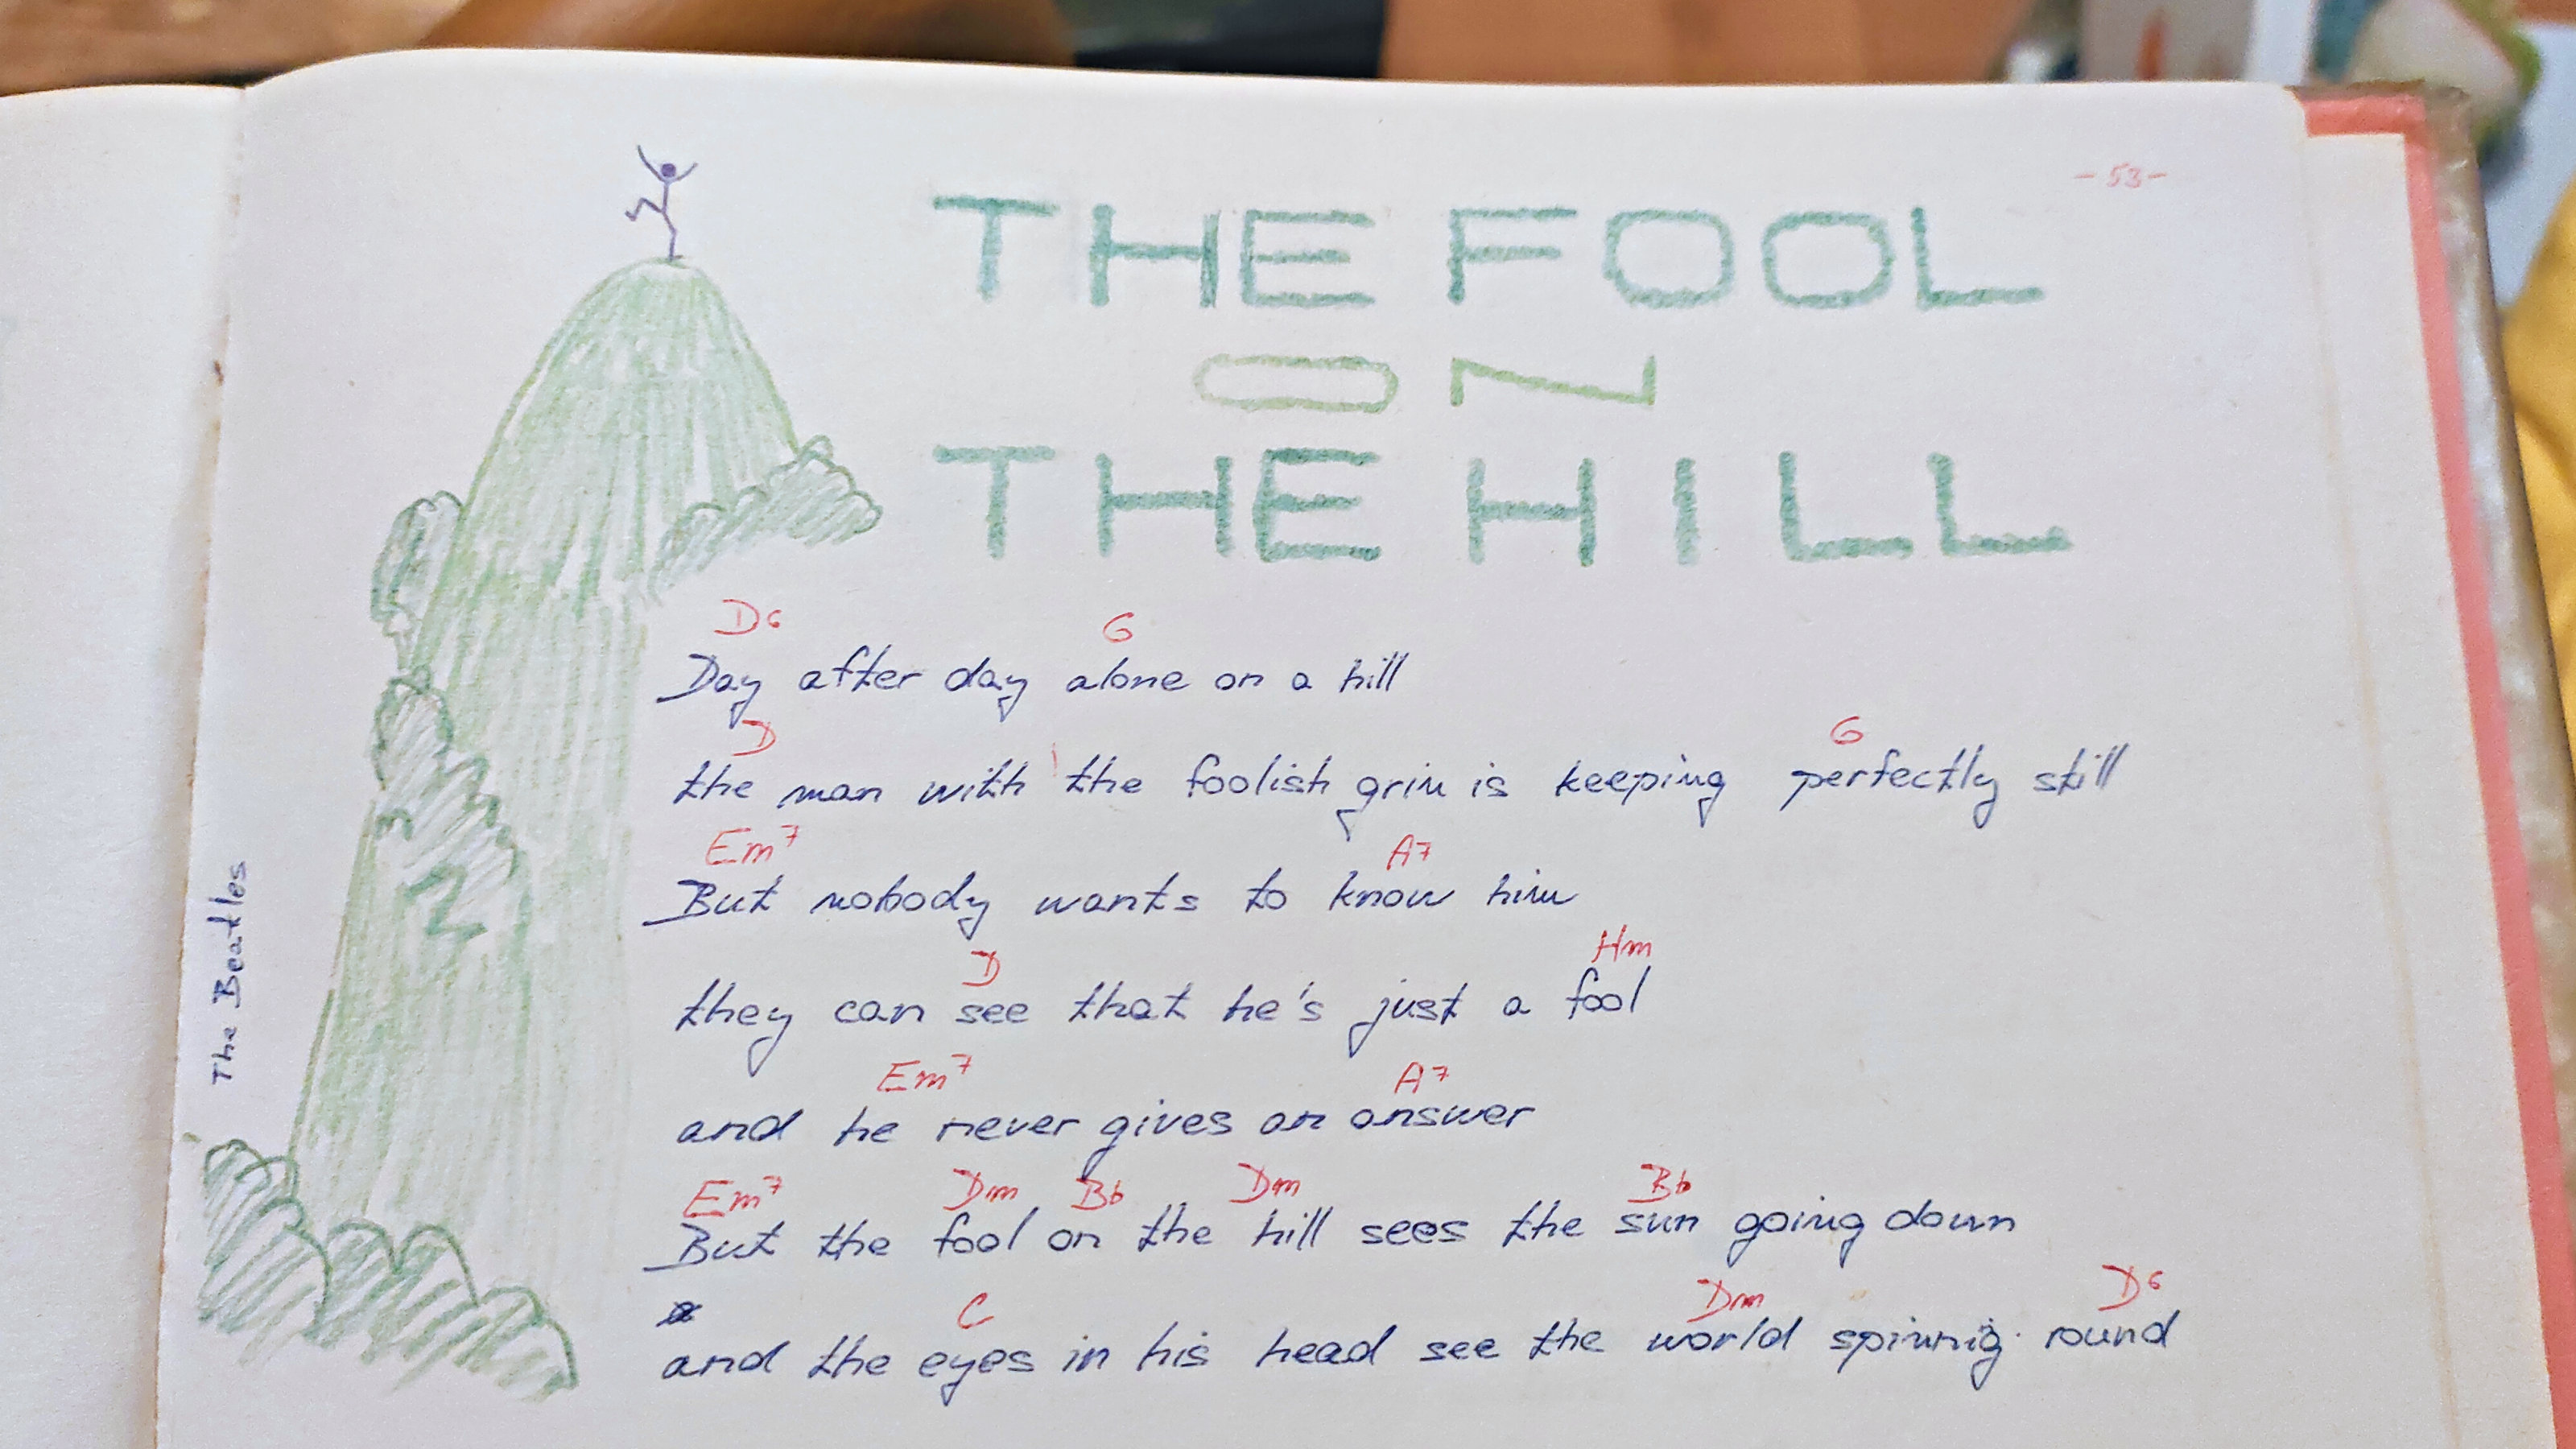 - 53 -
THE FOOL
ON
THE HILL
D6 G
Day after day alone on a hill
D G
the man with the foolish grin is keeping perfectly still
Em7 A7
But nobody wants to know him
D Hm
they can see that he's just a fool
Em7 A7
and he never gives an answer
Em7 Dm Bb Dm Bb
But the fool on the hill sees the sun going down
C Dm D6
and the eyes in his head see the world spinnig round
The Beatles